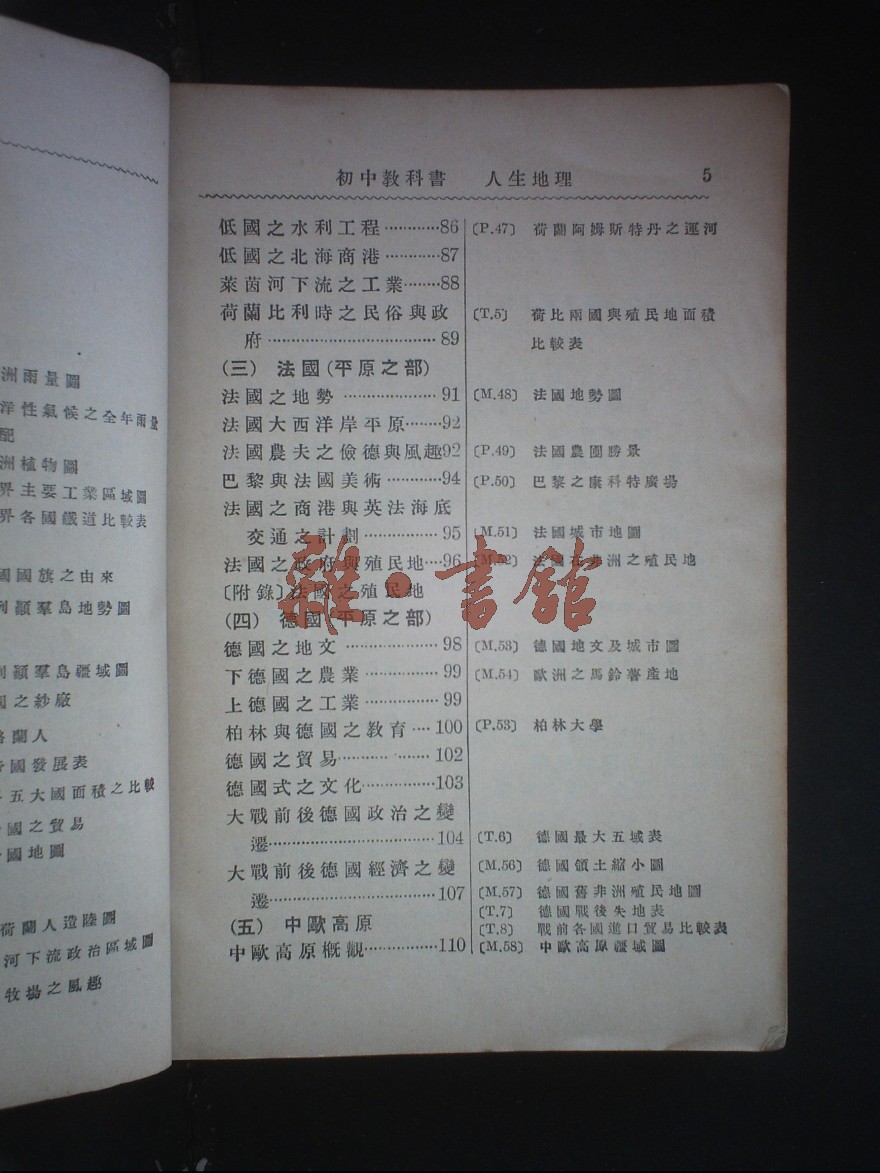 洲雨量圖
洋性氣候之全年雨量
配
洲植物圖
界主要工業區域圖
界各國鐵道比較表
國國旗之由來
列顛羣島地勢圖
列顛羣島疆域圖
國之紗廠
格蘭人
帝國發展表
五大國面積之比較
國之貿易
國地圖
荷蘭人造陸圖
河下流政治區域圖
牧場之風趣
初中教科書 人生地理 5
低國之水利工程…………86 〔P.47〕 荷蘭阿姆斯特丹之運河
低國之北海商港…………87
萊茵河下流之工業………88
荷蘭比利時之民俗與政 〔T.5〕 荷比兩國與殖民地面積
府……………………………89 比較表
(三) 法國(平原之部)
法國之地勢………………91 〔M.48〕 法國地勢圖
法國大西洋岸平原………92
法國農夫之儉德與風趣92 〔P.49〕 法國農園勝景
巴黎與法國美術…………94 〔P.50〕 巴黎之康科特廣場
法國之商港與英法海底
交通之計劃………………95 〔M.51〕 法國城市地圖
法國之政府與殖民地…96 〔M.52〕 法國在非洲之殖民地
〔附錄〕法國之殖民地
(四) 德國(平原之部)
德國之地文………………98 〔M.53〕 德國地文及城市圖
下德國之農業……………99 〔M.54〕 歐洲之馬鈴薯產地
上德國之工業……………99
柏林與德國之教育……100 〔P.53〕 柏林大學
德國之貿易………………102
德國式之文化……………103
大戰前後德國政治之變
遷……………………………104 〔T.6〕 德國最大五域表
大戰前後德國經濟之變 〔M.56〕 德國領土縮小圖
遷……………………………107 〔M.57〕 德國舊非洲殖民地圖
〔T.7〕 德國戰後失地表
(五) 中歐高原 〔T.8〕 戰前各國進口貿易比較表
中歐高原概觀……………110 〔M.58〕 中歐高原疆域圖
雜·書館